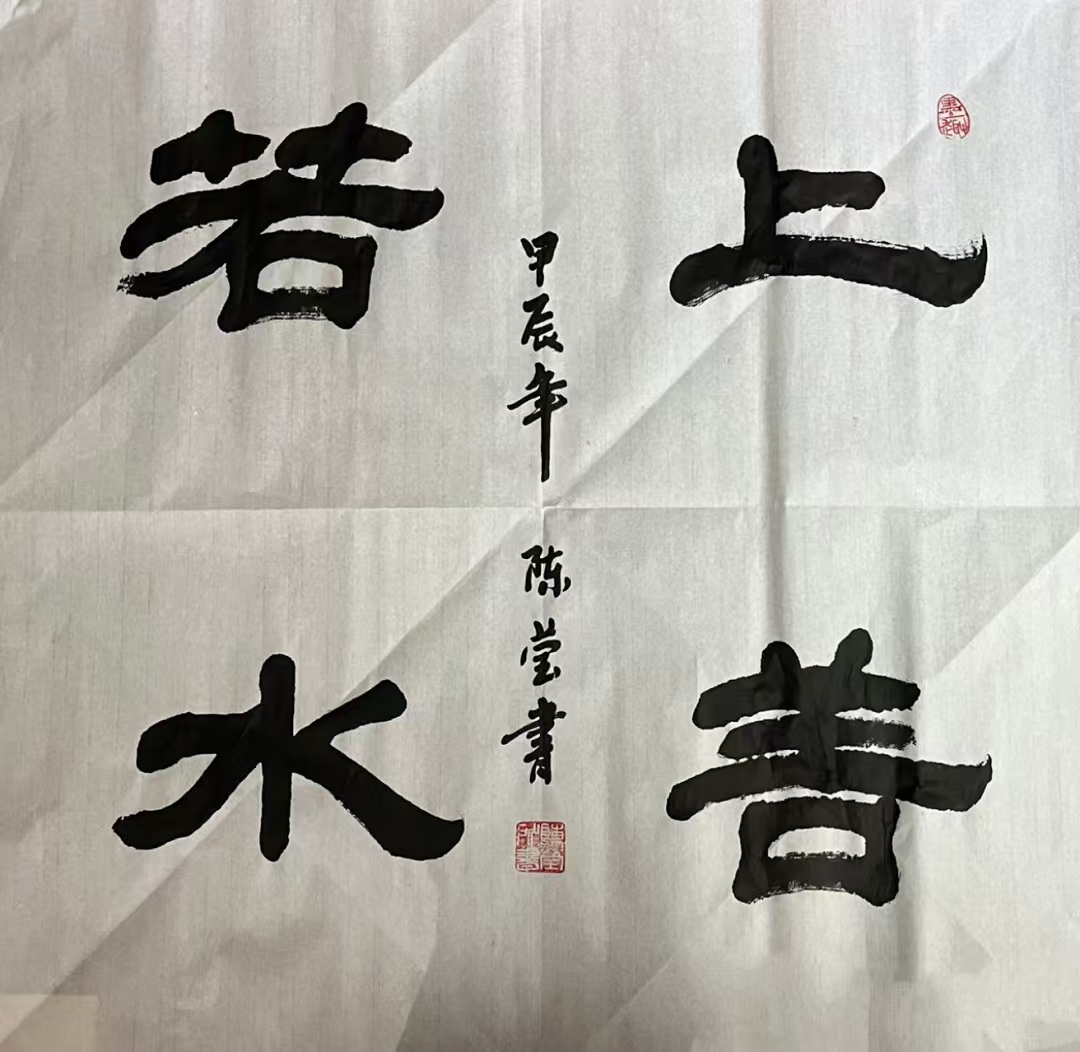 上善
若水
甲辰年 陈莹书